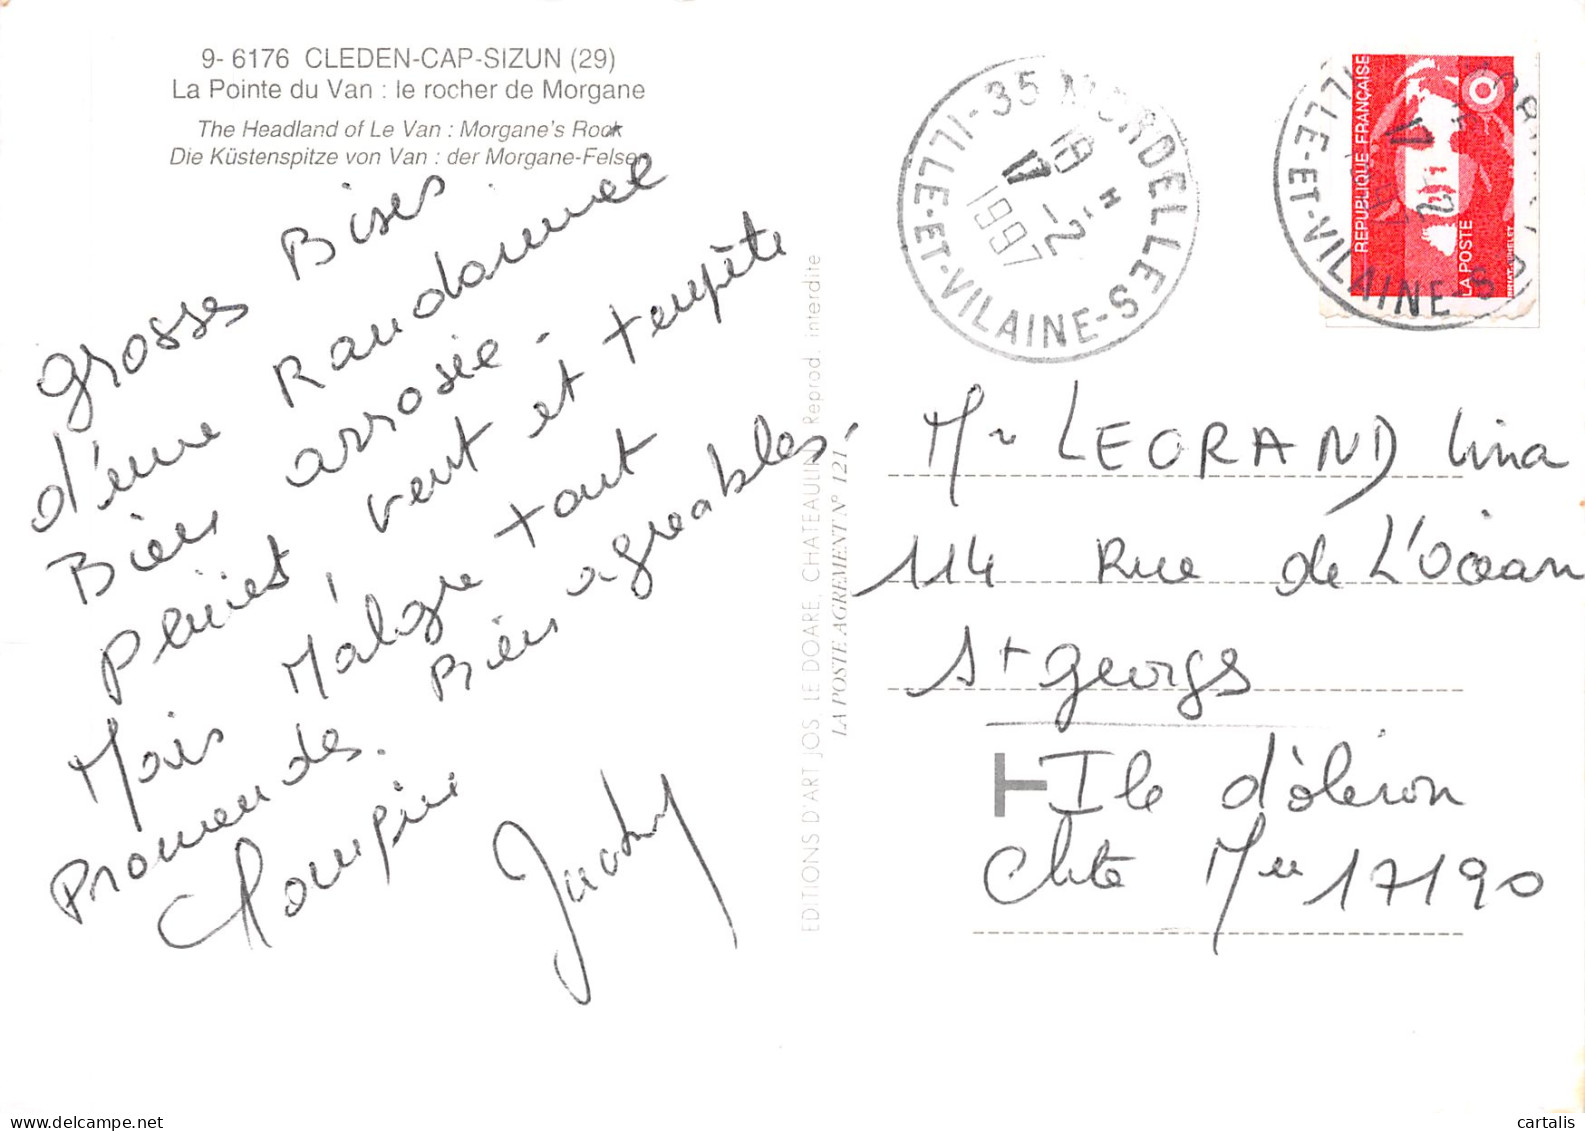 9- 6176 CLEDEN-CAP-SIZUN (29)
La Pointe du Van : le rocher de Morgane
The Headland of Le Van : Morgane's Rock
Die Küstenspitze von Van : der Morgane-Felsen
grosses Bises
d'une Randonnee
Bien arrosée.
pluies vent et tempête
Mais Malgre tout
Promenades Bien agréables.
EDITIONS D'ART JOS LE DOARE, CHATEAULIN Reprod. interdite
LA POSTE AGREMENT N° 121
35 MORDELLES
ILLE-ET-VILAINE
19 -2- H
1997
REPUBLIQUE FRANÇAISE
LA POSTE
ILLE-ET-VILAINE
Mr LEGRAND Lina
114 Rue de L'Océan
St georges
T Ile d'oléron
Chte Mme 17190
cartalis